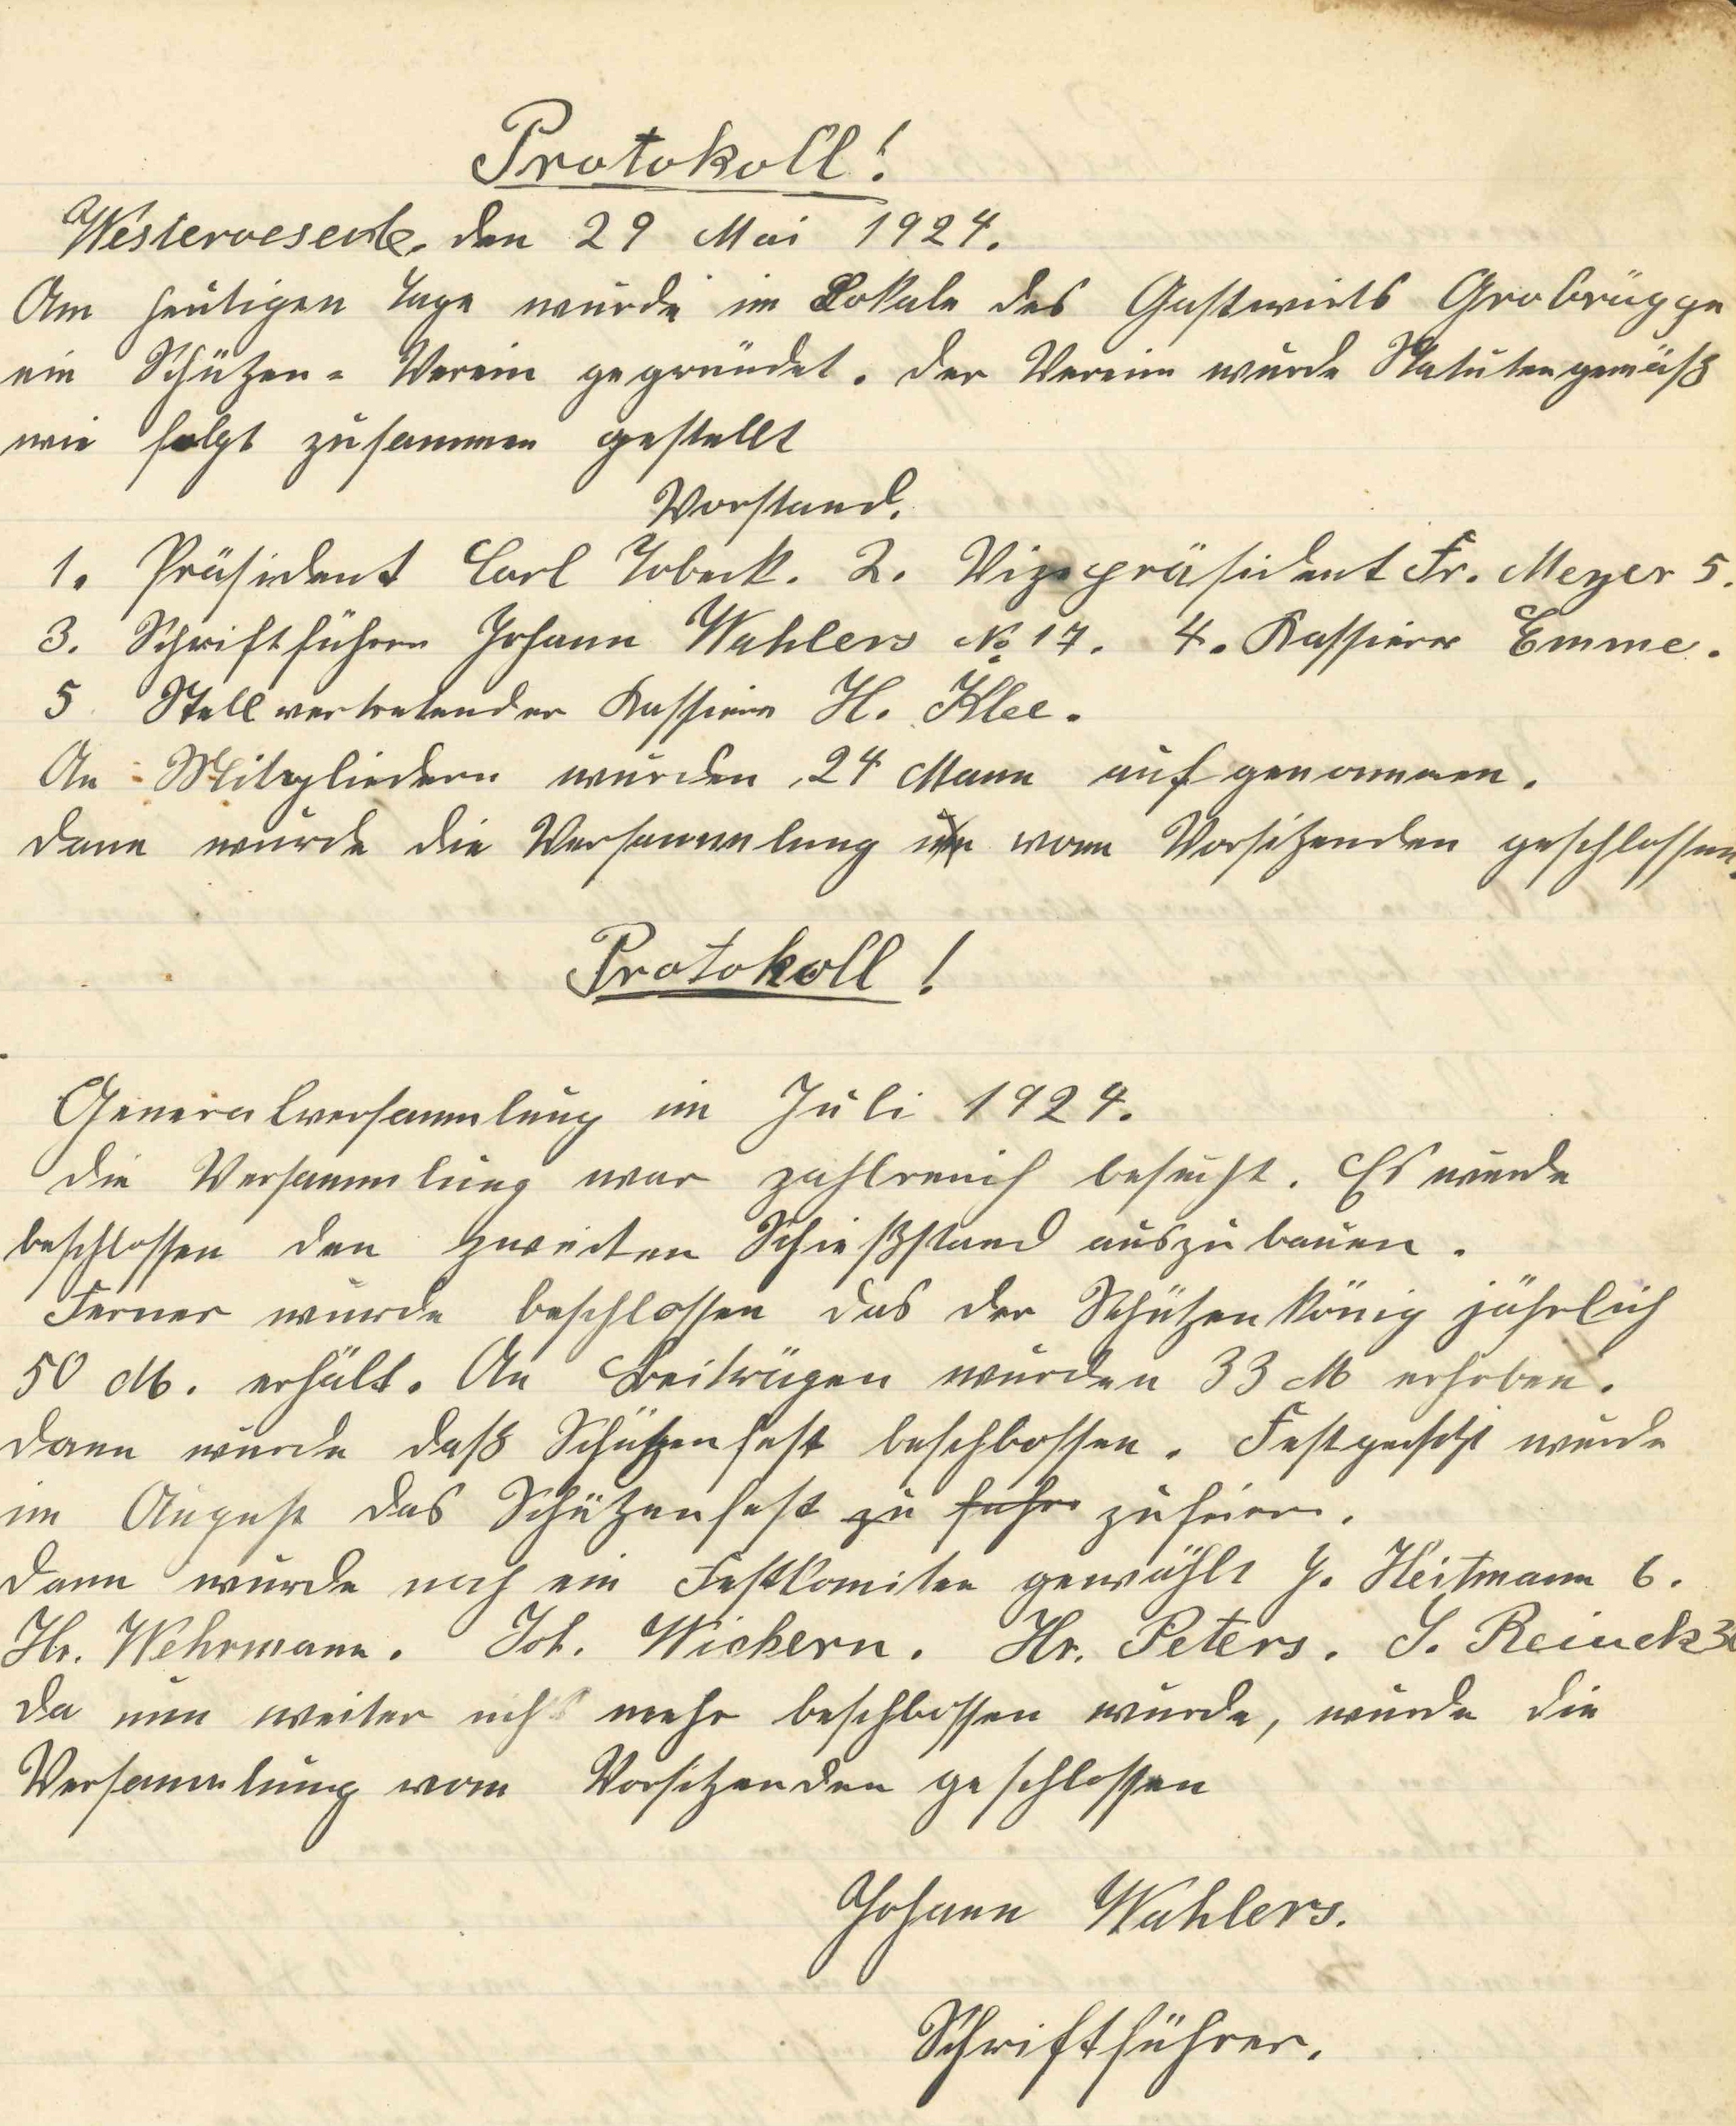 Protokoll!
Westervesede. den 29 Mai 1924.
Am heutigen Tage wurde im Lokale des Gastwirts Grobrügge
ein Schützen= Verein gegründet. Der Verein wurde Statutengemäß
wie folgt zusammen gestellt
Vorstand.
1. Präsident Carl Tobeck. 2. Vizepräsident Fr. Meyer 5.
3. Schriftführer Johann Wahlers No 17. 4. Kassierer Emme.
5 Stellvertretender Kassierer H. Klee.
An Mitgliedern wurden 24 Mann aufgenommen.
Dann wurde die Versammlung vom Vorsitzenden geschlossen.
Protokoll!
Generalversammlung im Juli 1924.
Die Versammlung war zahlreich besucht. Es wurde
beschlossen den zweiten Schießstand auszubauen.
Ferner wurde beschlossen das der Schützenkönig jährlich
50 M. erhält. An Beiträgen wurden 33 M erhoben.
Dann wurde daß Schützenfest beschlossen. Festgesetzt wurde
im August das Schützenfest zu zufeiern.
Dann wurde noch ein Festkomitee gewählt J. Heitmann 6.
Hr. Wehrmann. Joh. Wichern. Hr. Peters. J. Reinck
Da nun weiter nichts mehr beschlossen wurde, wurde die
Versammlung vom Vorsitzenden geschlossen
Johann Wahlers.
Schriftführer.